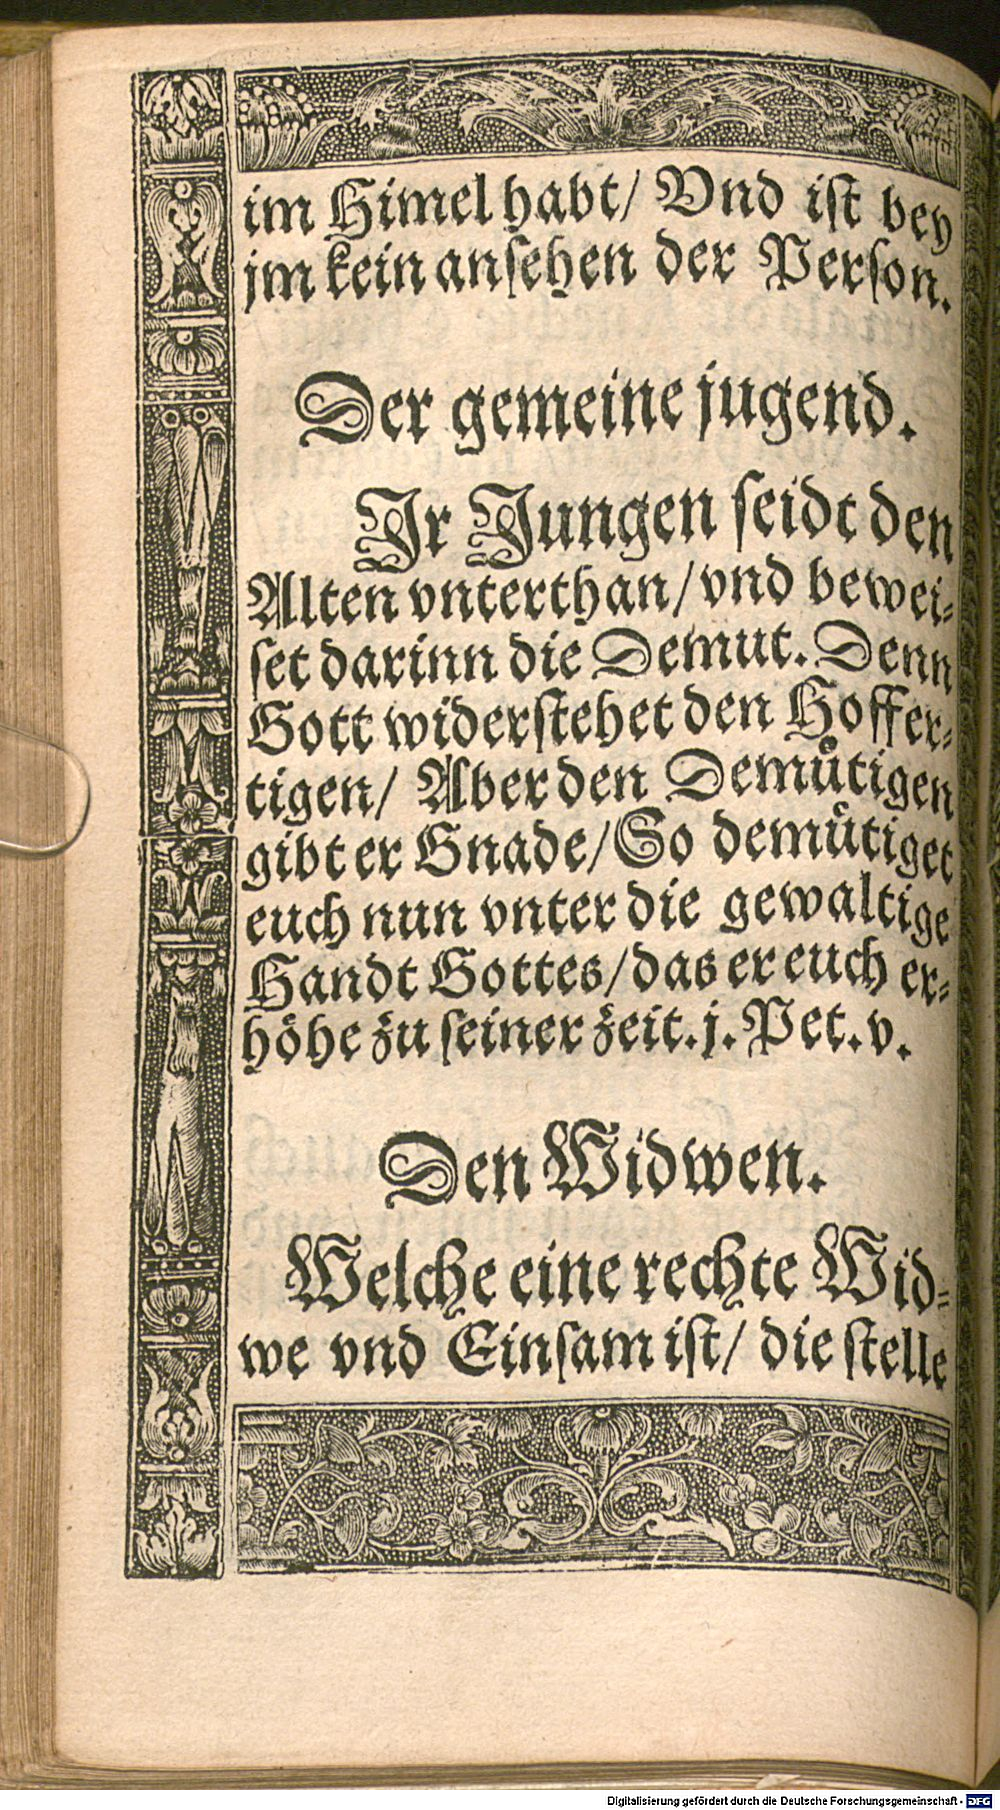 im Himel habt/ Vnd ist bey
jm kein ansehen der Person.
Der gemeine jugend.
Jr Jungen seidt den
Alten vnterthan/ vnd bewei=
set darinn die Demut. Denn
Gott widerstehet den Hoffer=
tigen/ Aber den Demuͤtigen
gibt er Gnade/ So demuͤtiget
euch nun vnter die gewaltige
Handt Gottes/ das er euch er=
hoͤhe zu seiner zeit. j. Pet. v.
Den Widwen.
Welche eine rechte Wid=
we vnd Einsam ist/ die stelle
Digitalisierung gefördert durch die Deutsche Forschungsgemeinschaft - DFG